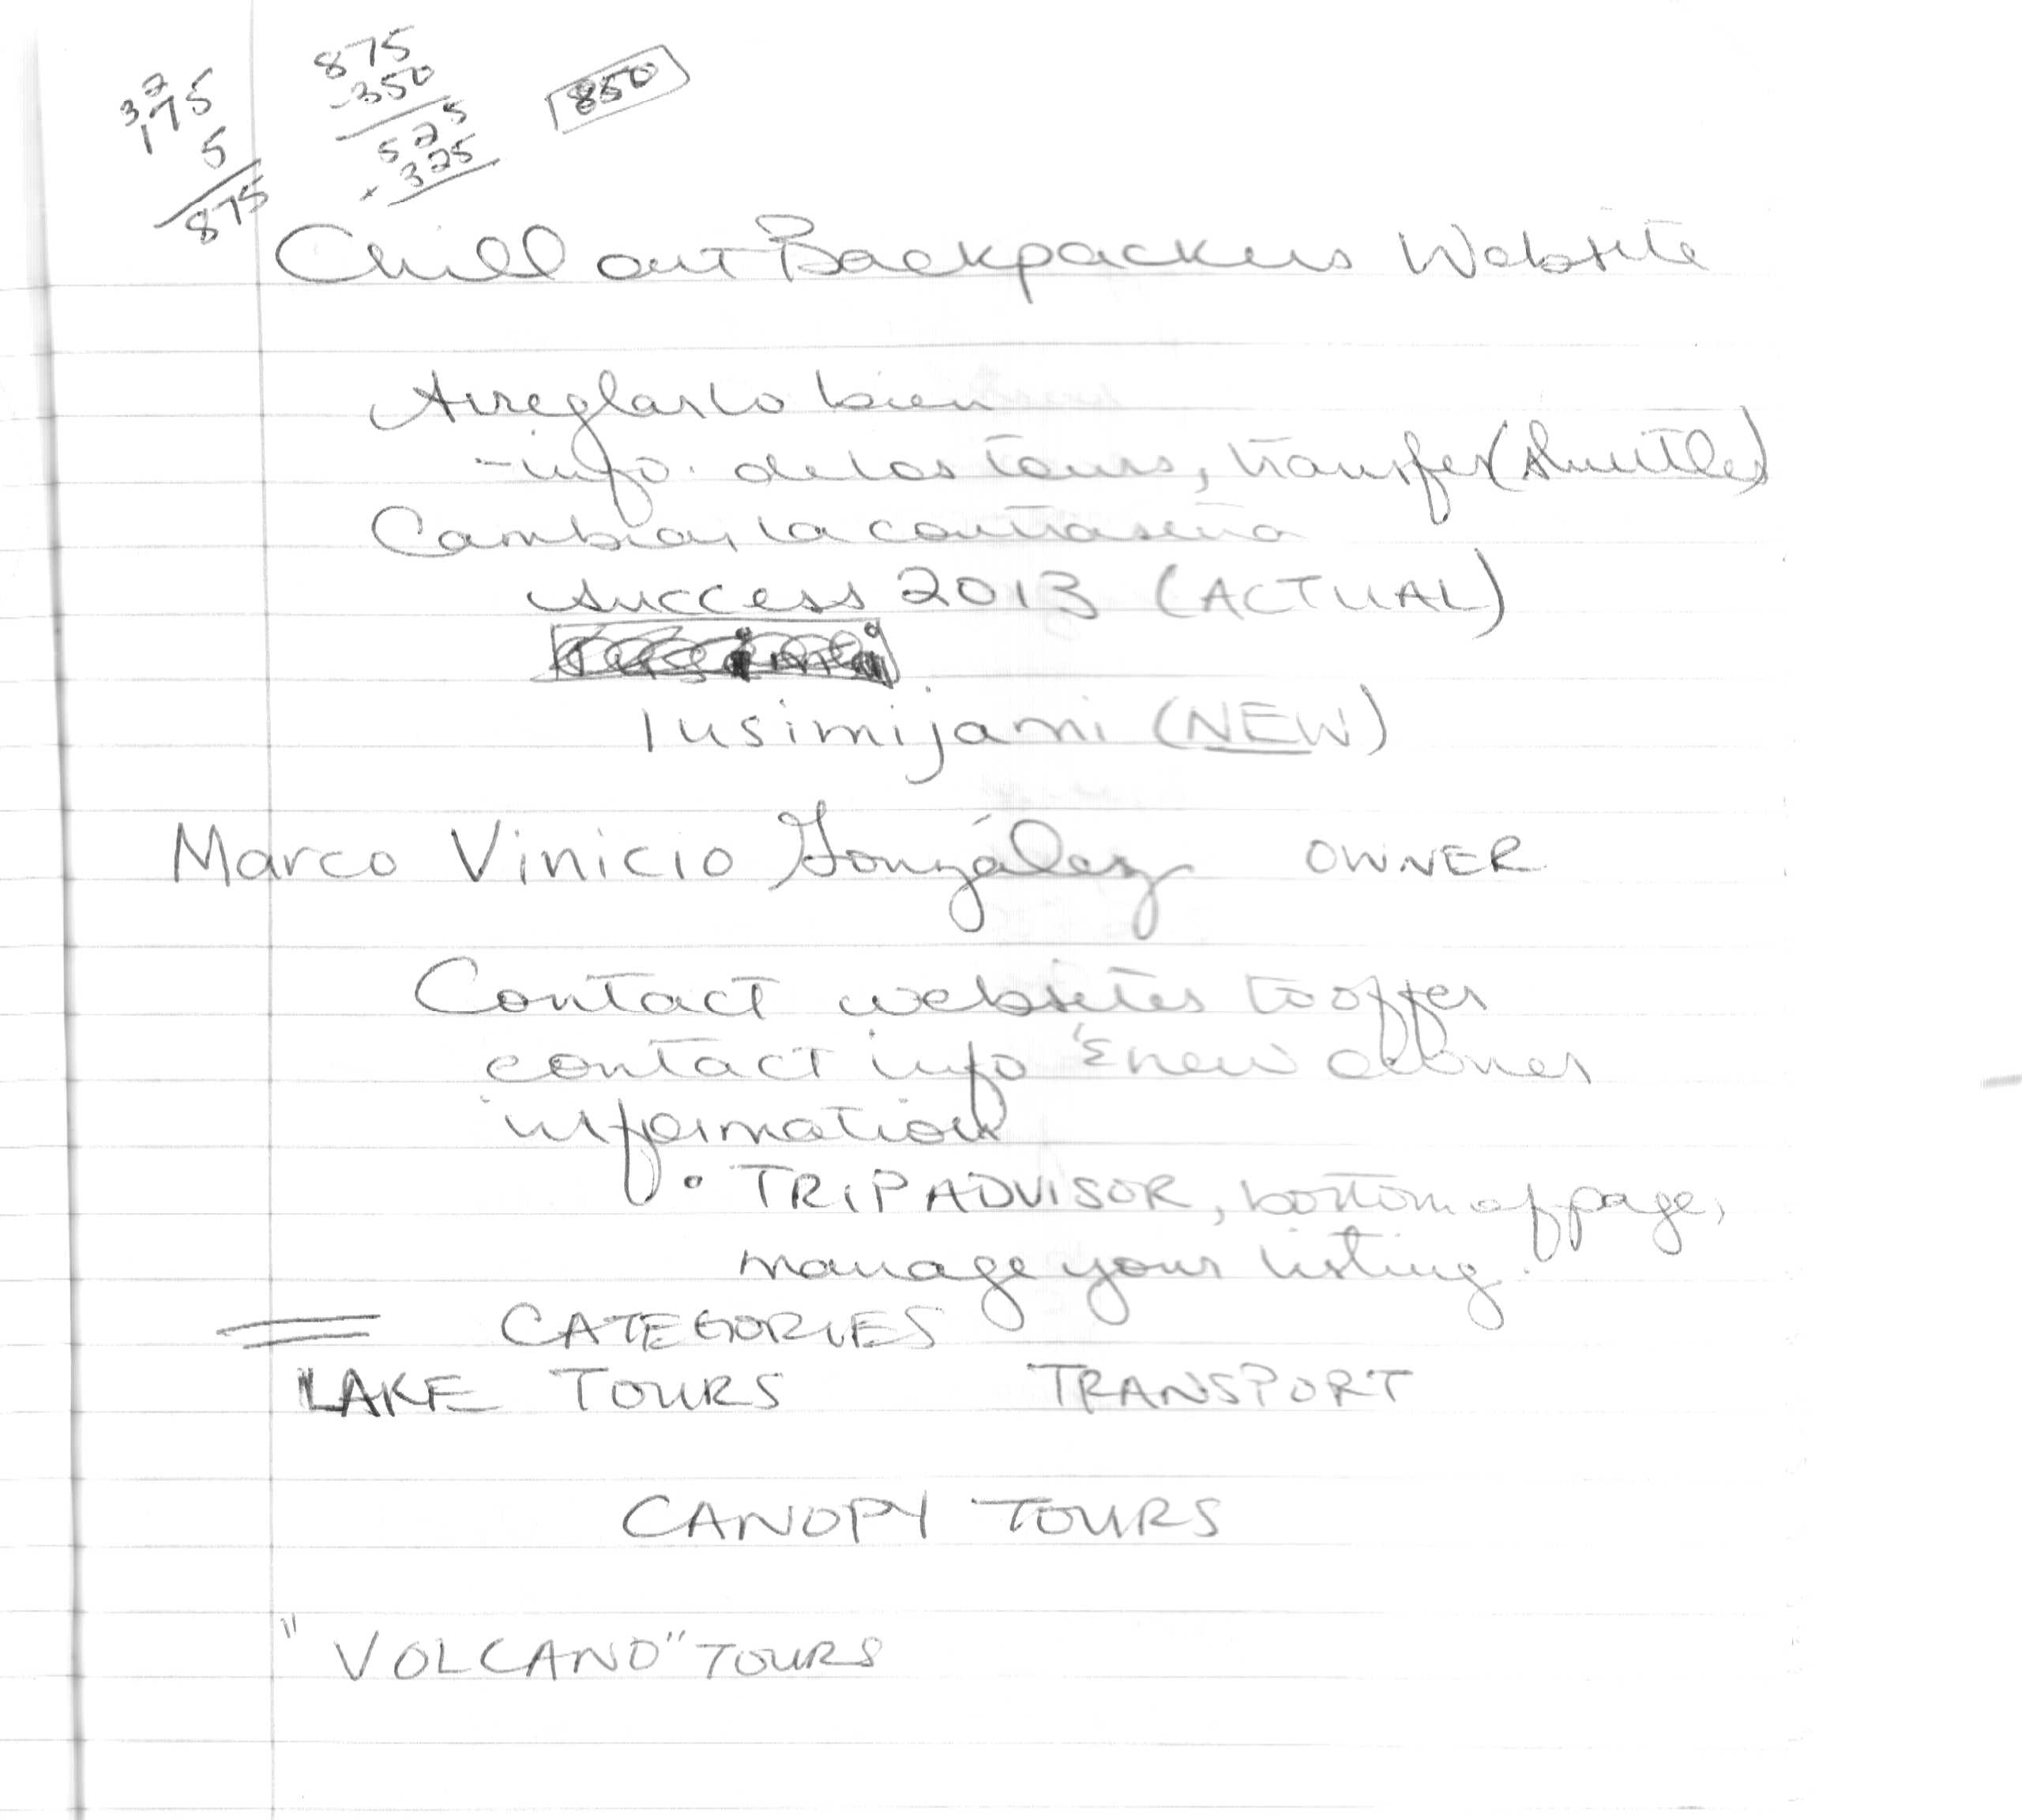 32
175
5
875
875
-350
525
+325
850
Chill out Backpackers Website
Arreglarlo bien
-info. de los tours, transfer (shuttles)
Cambiar la contraseña
success 2013 (ACTUAL)
lusimijami (NEW)
Marco Vinicio González OWNER
Contact websites to offer
contact info & new owner
information
• TRIPADVISOR, bottom of page,
manage your listing.
CATEGORIES
LAKE TOURS TRANSPORT
CANOPY TOURS
"VOLCANO" TOURS